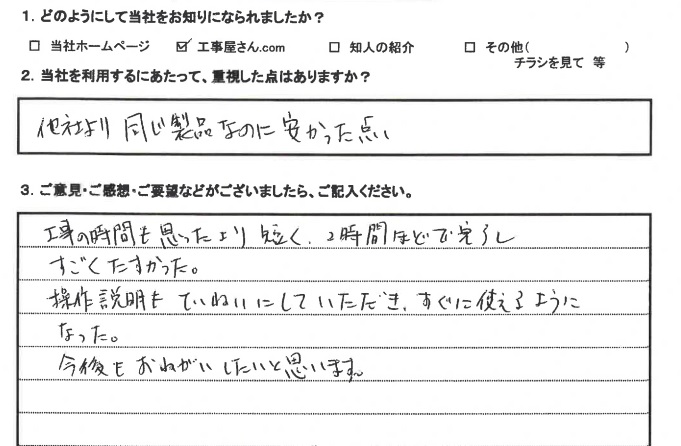 1. どのようにして当社をお知りになられましたか？
□ 当社ホームページ ☑ 工事屋さん.com □ 知人の紹介 □ その他( )
チラシを見て 等
2. 当社を利用するにあたって、重視した点はありますか？
他社より同じ製品なのに安かった点
3. ご意見・ご感想・ご要望などがございましたら、ご記入ください。
工事の時間も思ったより短く、2時間ほどで完了し
すごくたすかった。
操作説明もていねいにしていただき、すぐに使えるように
なった。
今後もおねがいしたいと思います。